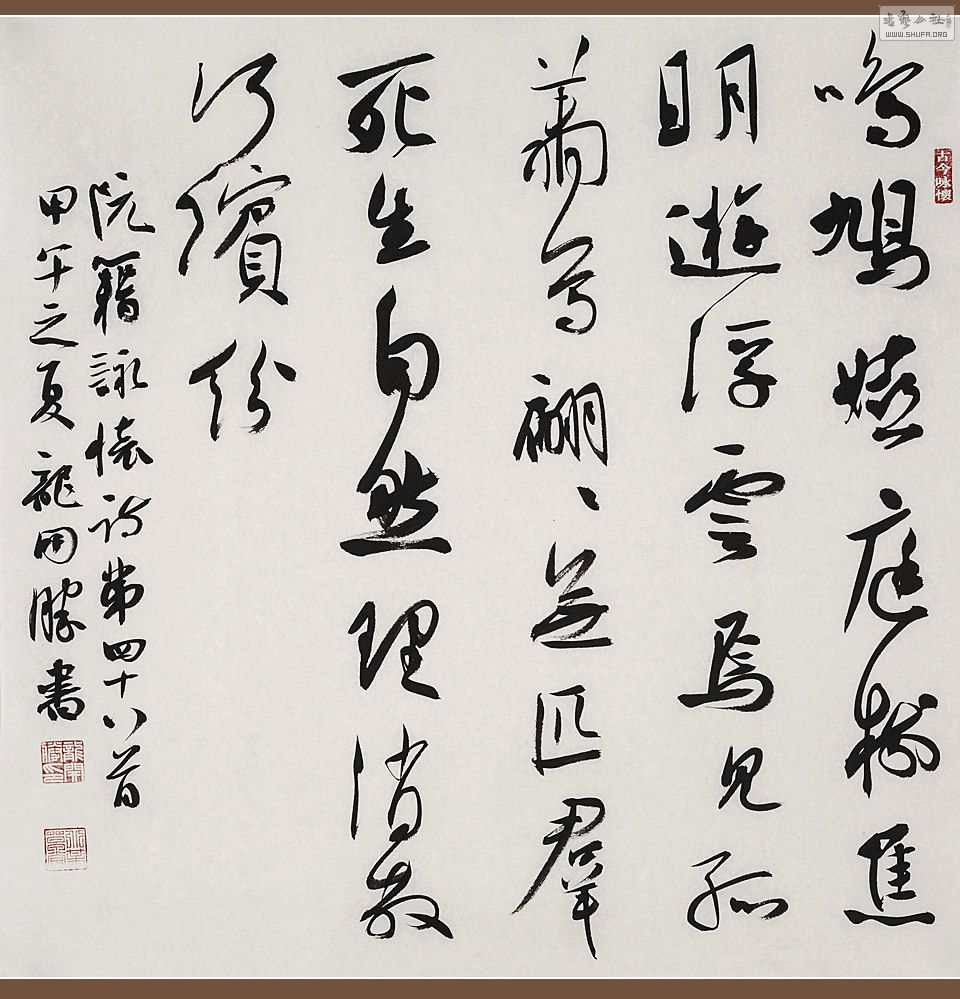 鳴鳩嬉庭樹焦
明遊浮雲焉見孤
翔鳥翩〻無匹羣
死生自然理消散
何繽紛
阮籍詠懷詩第四十八首
甲午之夏龍開勝書
古今咏懷
龍開勝印
書藝公社
WWW.SHUFA.ORG